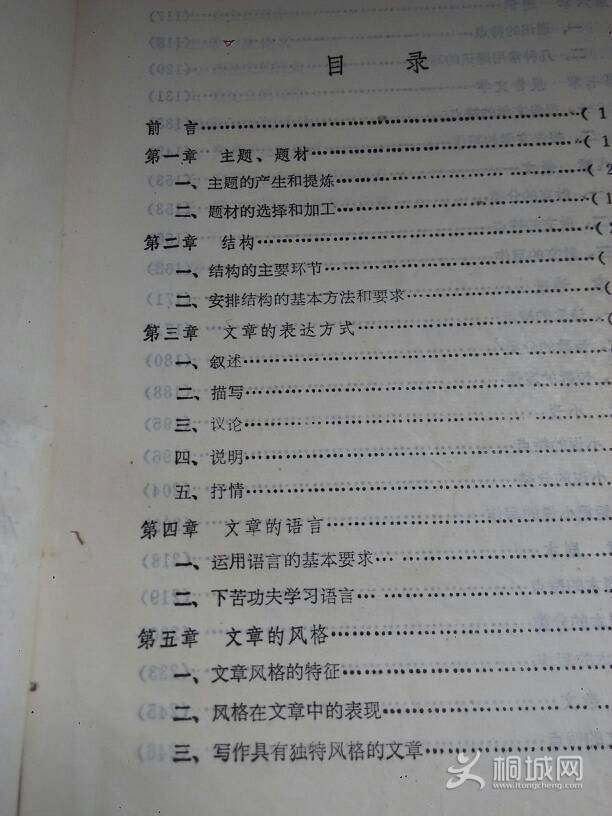 目 录
前 言……………………………………( 1
第一章 主题、题材……………………( 1
一、主题的产生和提炼………………( 2
二、题材的选择和加工………………( 1
第二章 结构……………………………( 2
一、结构的主要环节…………………(
二、安排结构的基本方法和要求……(
第三章 文章的表达方式………………(
一、叙述………………………………
二、描写………………………………
三、议论………………………………
四、说明………………………………
五、抒情………………………………
第四章 文章的语言……………………
一、运用语言的基本要求……………
二、下苦功夫学习语言………………
第五章 文章的风格……………………
一、文章风格的特征…………………
二、风格在文章中的表现……………
三、写作具有独特风格的文章………
桐城网
www.itongcheng.com